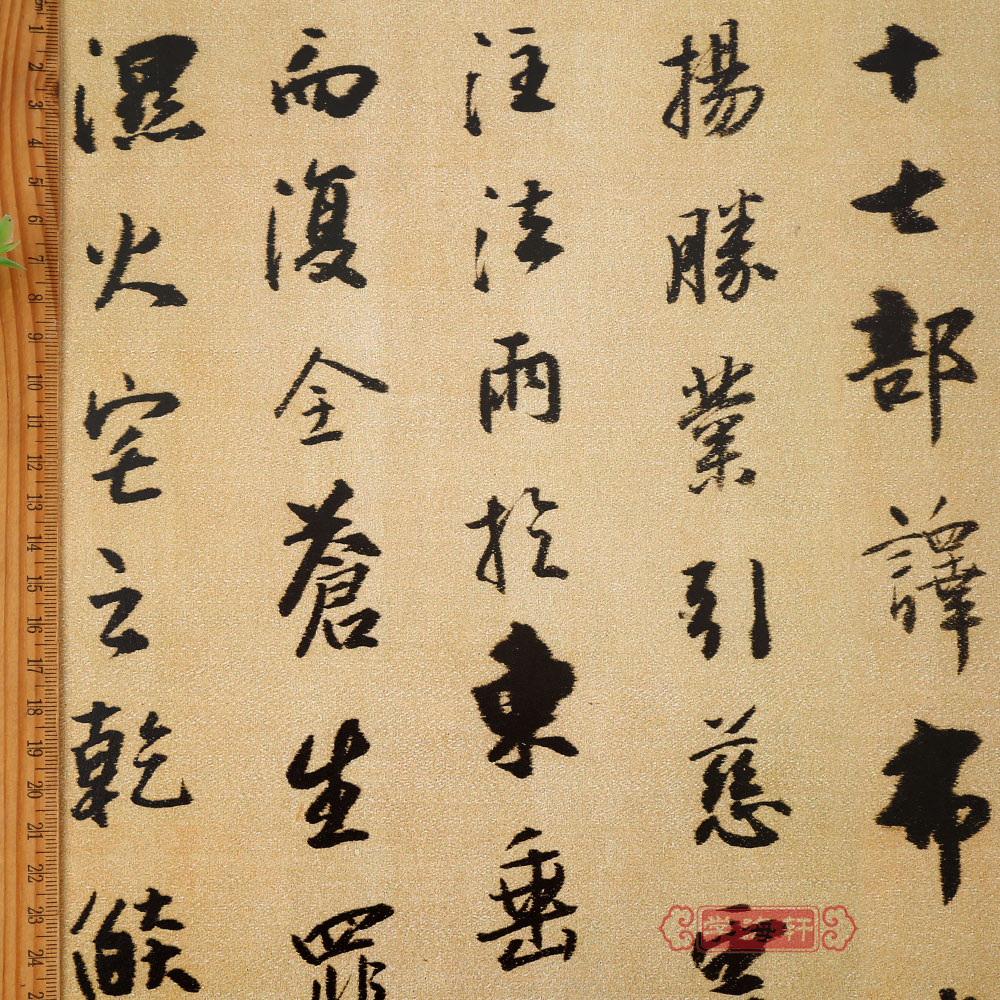 十七部譯布
揚勝業引慈雲
注法雨於東垂
而復全蒼生罪
濕火宅之乾燄
学海轩
1 2 3 4 5 6 7 8 9 10 11 12 13 14 15 16 17 18 19 20 21 22 23 24